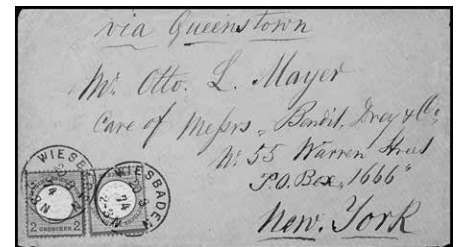 via Queenstown
Mr. Otto. L. Mayer
Care of Messrs. Bendit, Drey & Co.
No. 55 Warren Street
P.O. Box, 1666
New. York
WIESBADEN
WIESBADEN
2 GROSCHEN 2